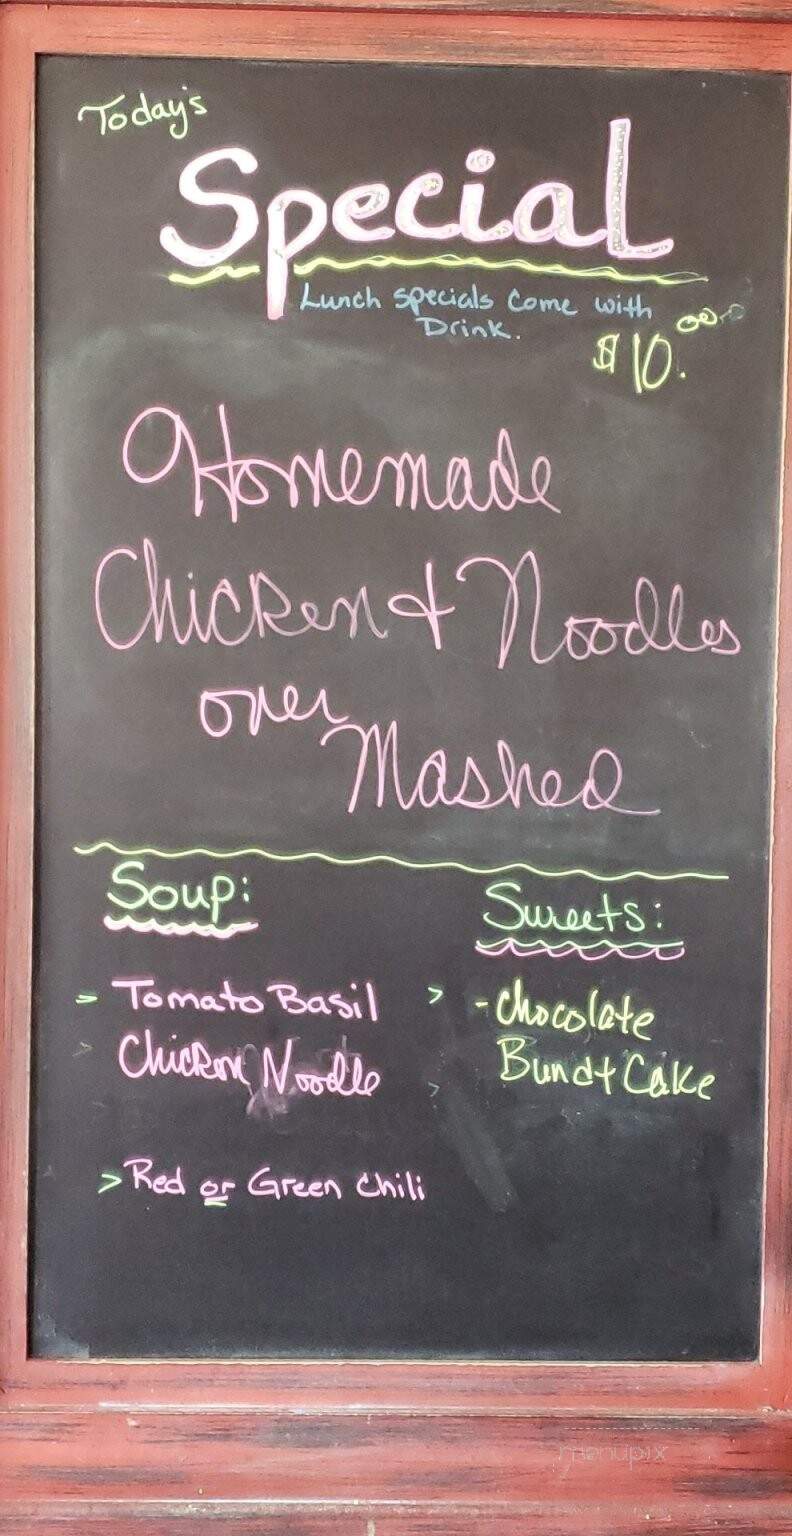 Today's
Special
Lunch specials Come with
Drink.
$10.00
Homemade
Chicken & Noodles
over
Mashed
Soup:
Sweets:
> Tomato Basil
> Chicken Noodle
> Red or Green Chili
> - Chocolate
Bundt Cake
>
menupix